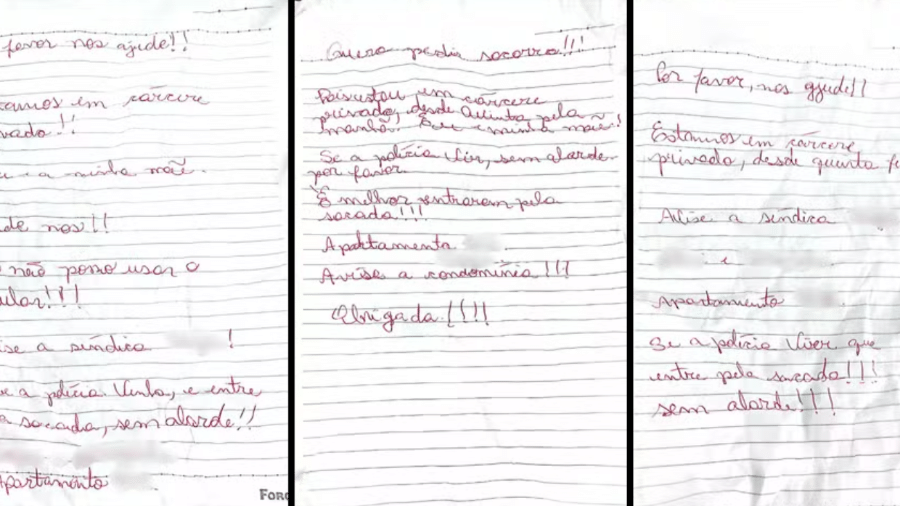 favor nos ajude!!
tamos em cárcere
vado!!
u e a minha mãe.
de nos!!
não posso usar o
ular!!!
ise a síndica !
e a polícia. Venha, e entre
a sacada, sem alarde!!
Apartamento
FORO
Quero pedir socorro!!!
em cárcere
privado, desde Quinta pela
manhã. Eu e minha mãe!
Se a polícia Vir, sem alarde
por favor.
É melhor entrarem pela
sacada!!!
Apaktamento
Avise a condomínia !!!
Obrigada.!!!!
Por favor, nos ajude!!
Estamos em cárcere,
privado, desde quinta fe
Avise a síndica
e
Apartamento
Se a polícia Viver que
entre pela sacada!!!
sem alarde!!!